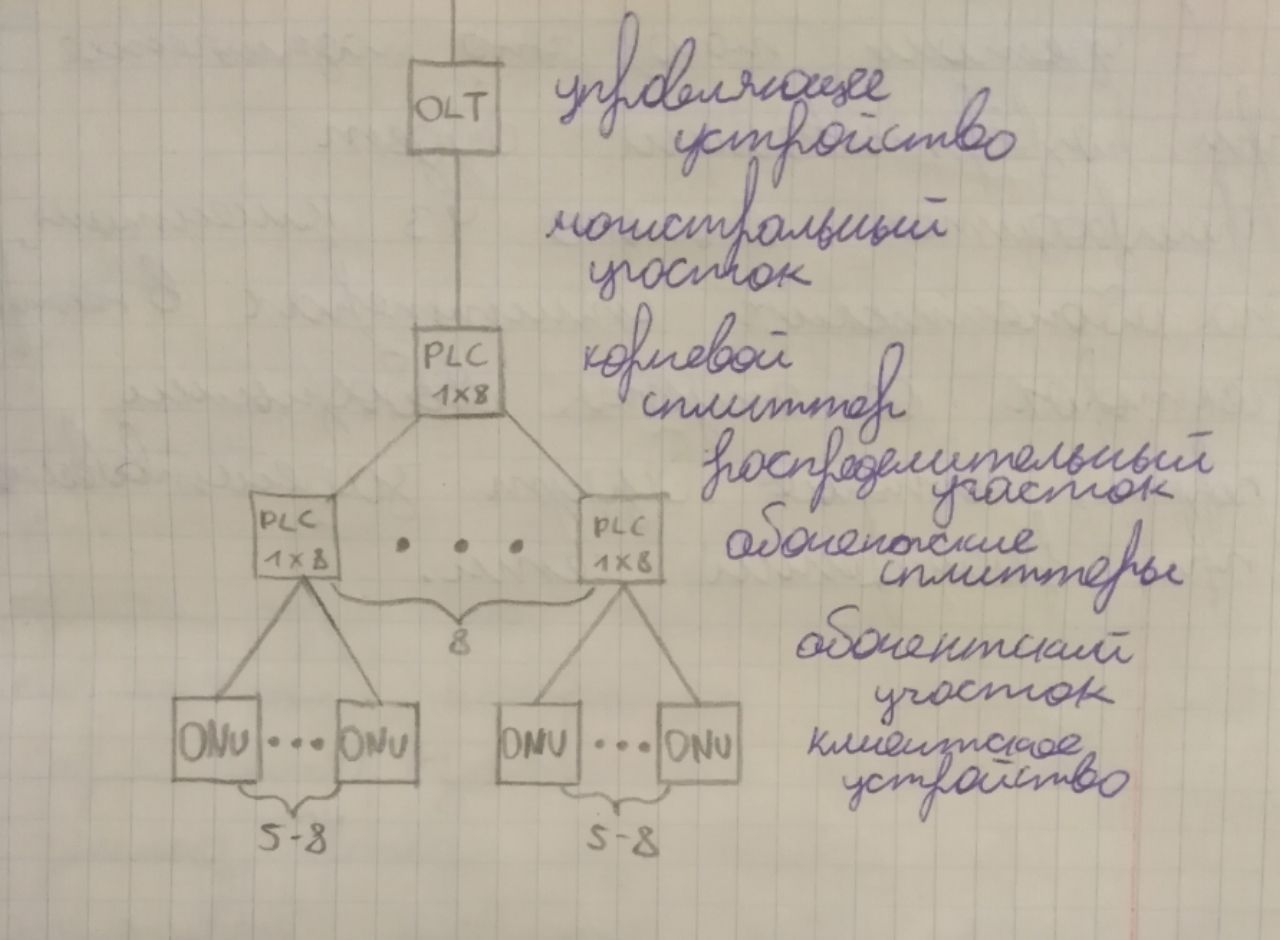 OLT
управляющее
устройство
магистральный
участок
PLC
1x8
корневой
сплиттер
распределительный
участок
PLC
1x8
• • •
PLC
1x8
абонентские
сплиттеры
8
абонентский
участок
ONU ••• ONU ONU ••• ONU
клиентское
устройство
5-8 5-8